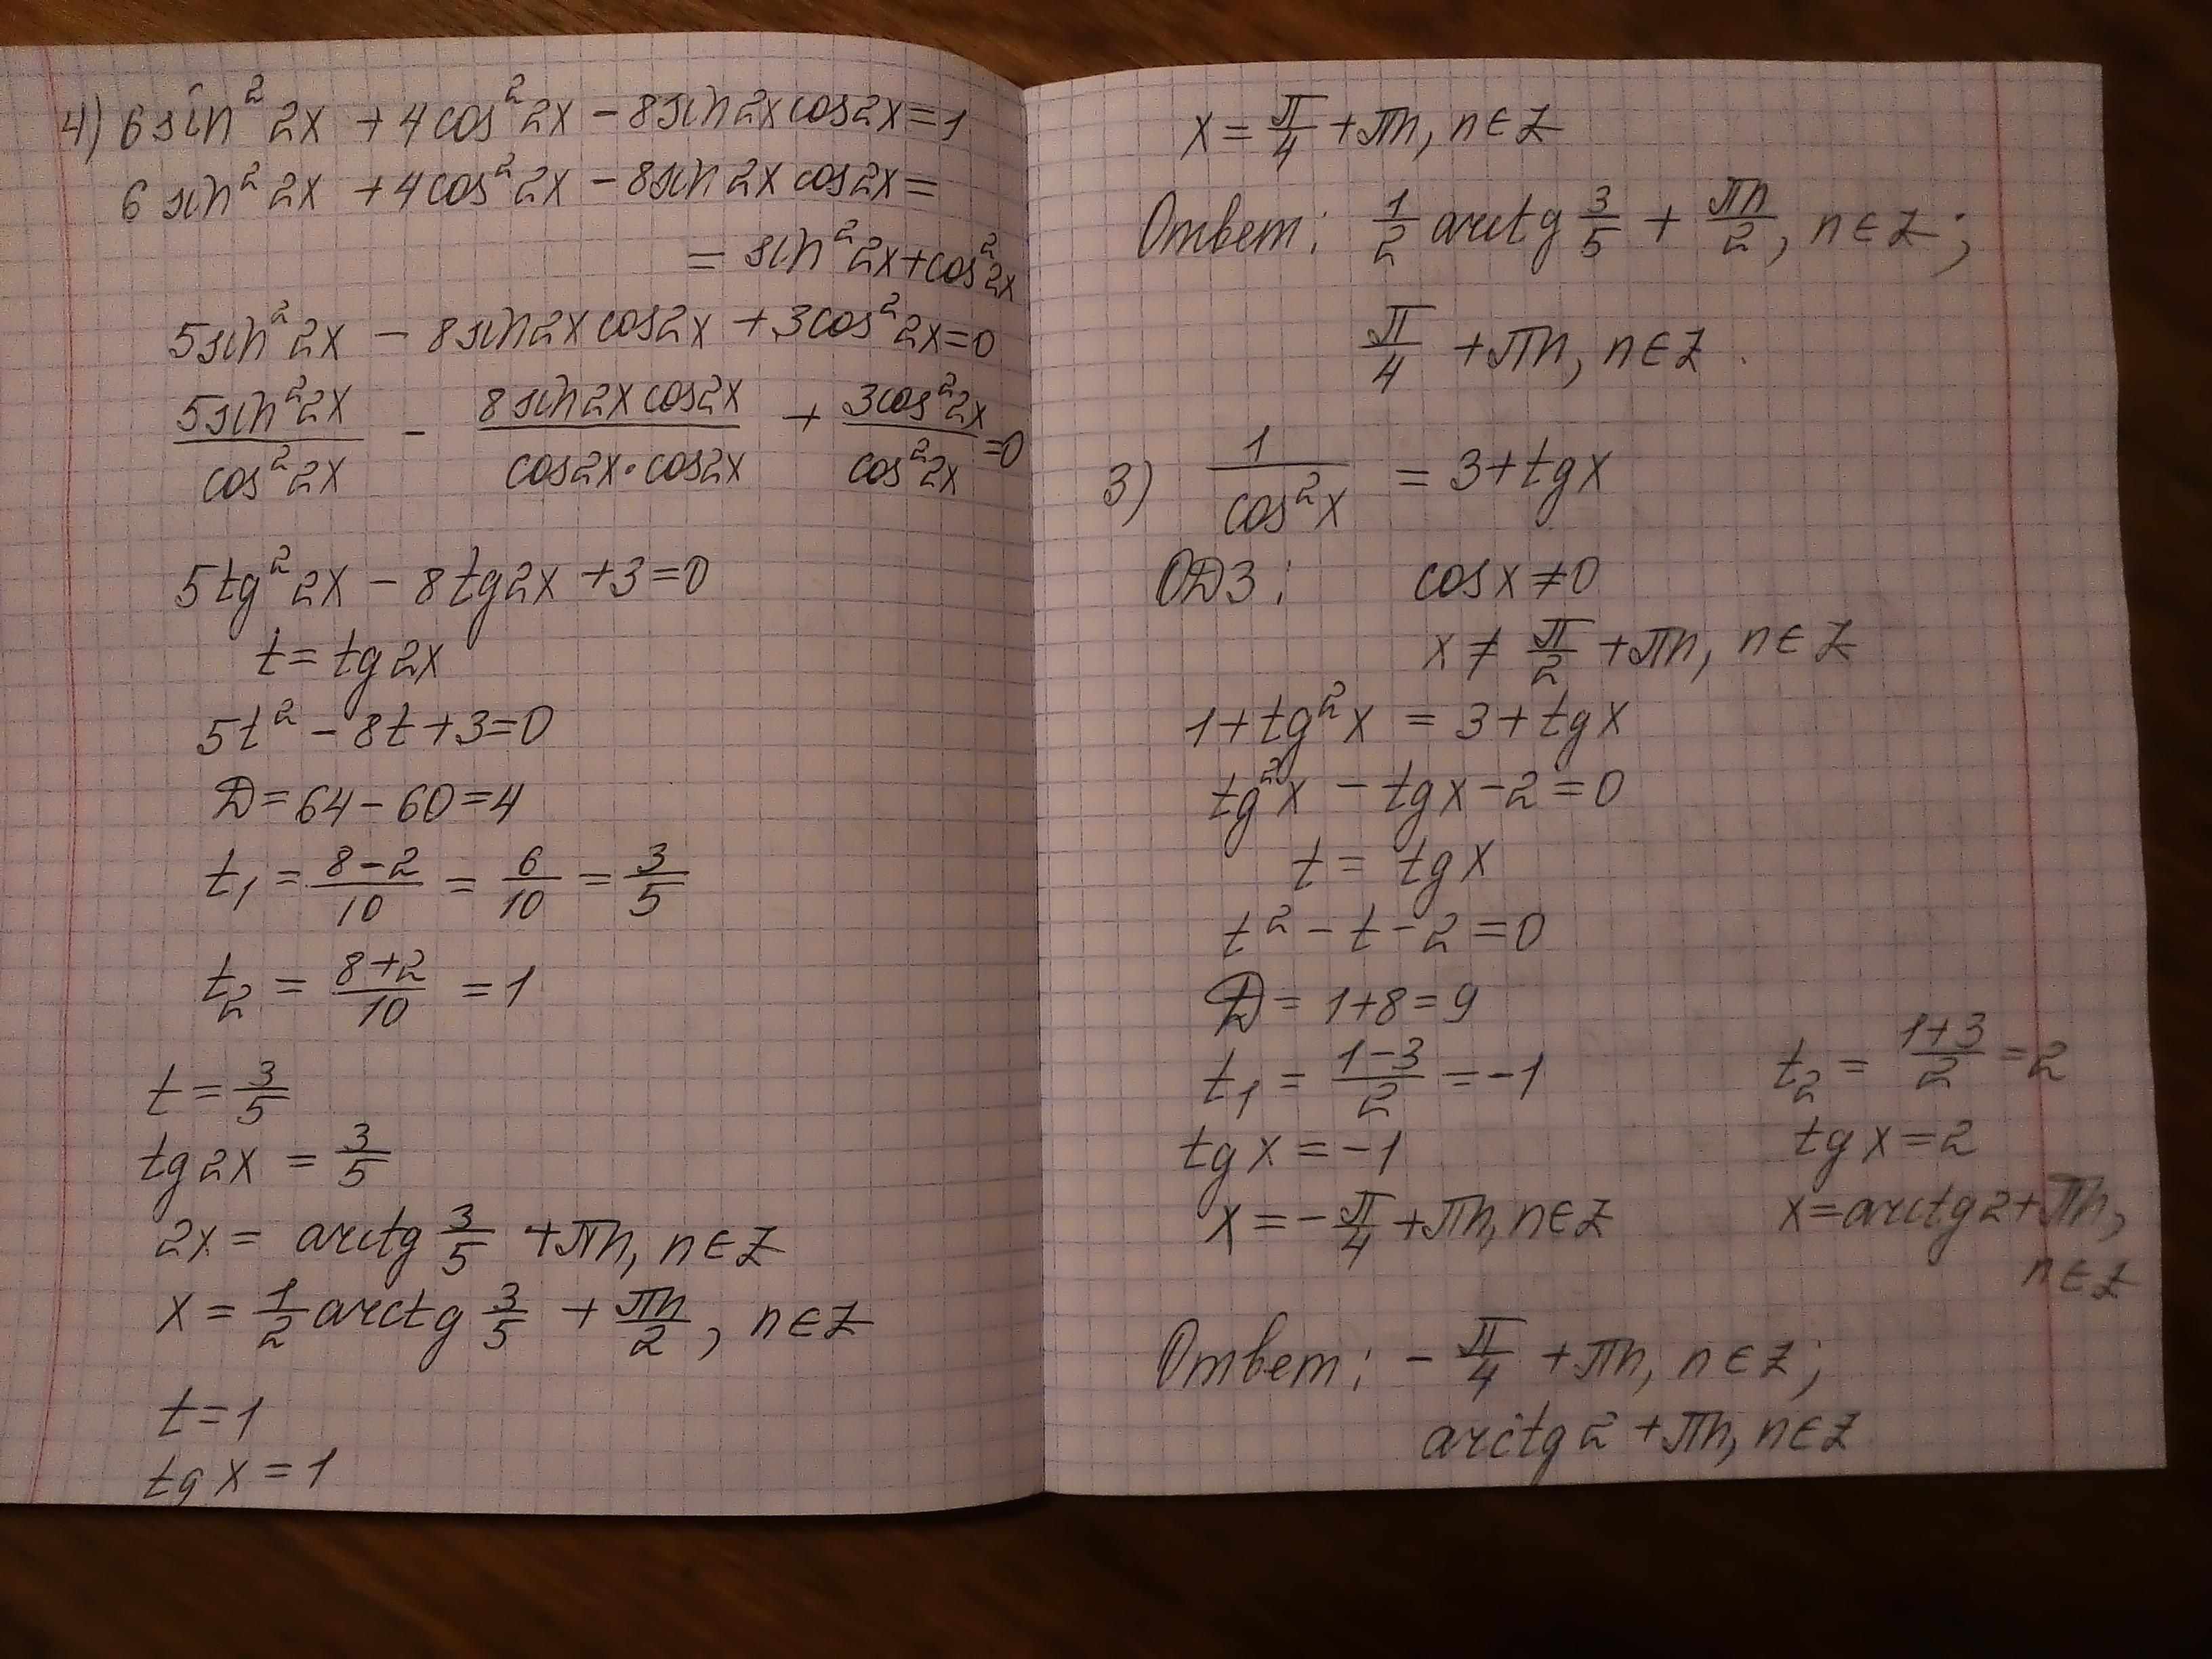 4) 6 sin² 2x + 4 cos² 2x − 8 sin 2x cos 2x = 1
6 sin² 2x + 4 cos² 2x − 8 sin 2x cos 2x =
= sin² 2x + cos² 2x
5 sin² 2x − 8 sin 2x cos 2x + 3 cos² 2x = 0
5 sin² 2x / cos² 2x − 8 sin 2x cos 2x / cos 2x · cos 2x + 3 cos² 2x / cos² 2x = 0
5 tg² 2x − 8 tg 2x + 3 = 0
t = tg 2x
5t² − 8t + 3 = 0
D = 64 − 60 = 4
t₁ = (8 − 2)/10 = 6/10 = 3/5
t₂ = (8 + 2)/10 = 1
t = 3/5
tg 2x = 3/5
2x = arctg 3/5 + πn, n ∈ Z
x = 1/2 arctg 3/5 + πn/2, n ∈ Z
t = 1
tg x = 1
x = π/4 + πn, n ∈ Z
Ответ: 1/2 arctg 3/5 + πn/2, n ∈ Z;
π/4 + πn, n ∈ Z.
3) 1/cos² x = 3 + tg x
ОДЗ: cos x ≠ 0
x ≠ π/2 + πn, n ∈ Z
1 + tg² x = 3 + tg x
tg² x − tg x − 2 = 0
t = tg x
t² − t − 2 = 0
D = 1 + 8 = 9
t₁ = (1 − 3)/2 = −1
tg x = −1
x = −π/4 + πn, n ∈ Z
t₂ = (1 + 3)/2 = 2
tg x = 2
x = arctg 2 + πn,
n ∈ Z
Ответ: −π/4 + πn, n ∈ Z;
arctg 2 + πn, n ∈ Z